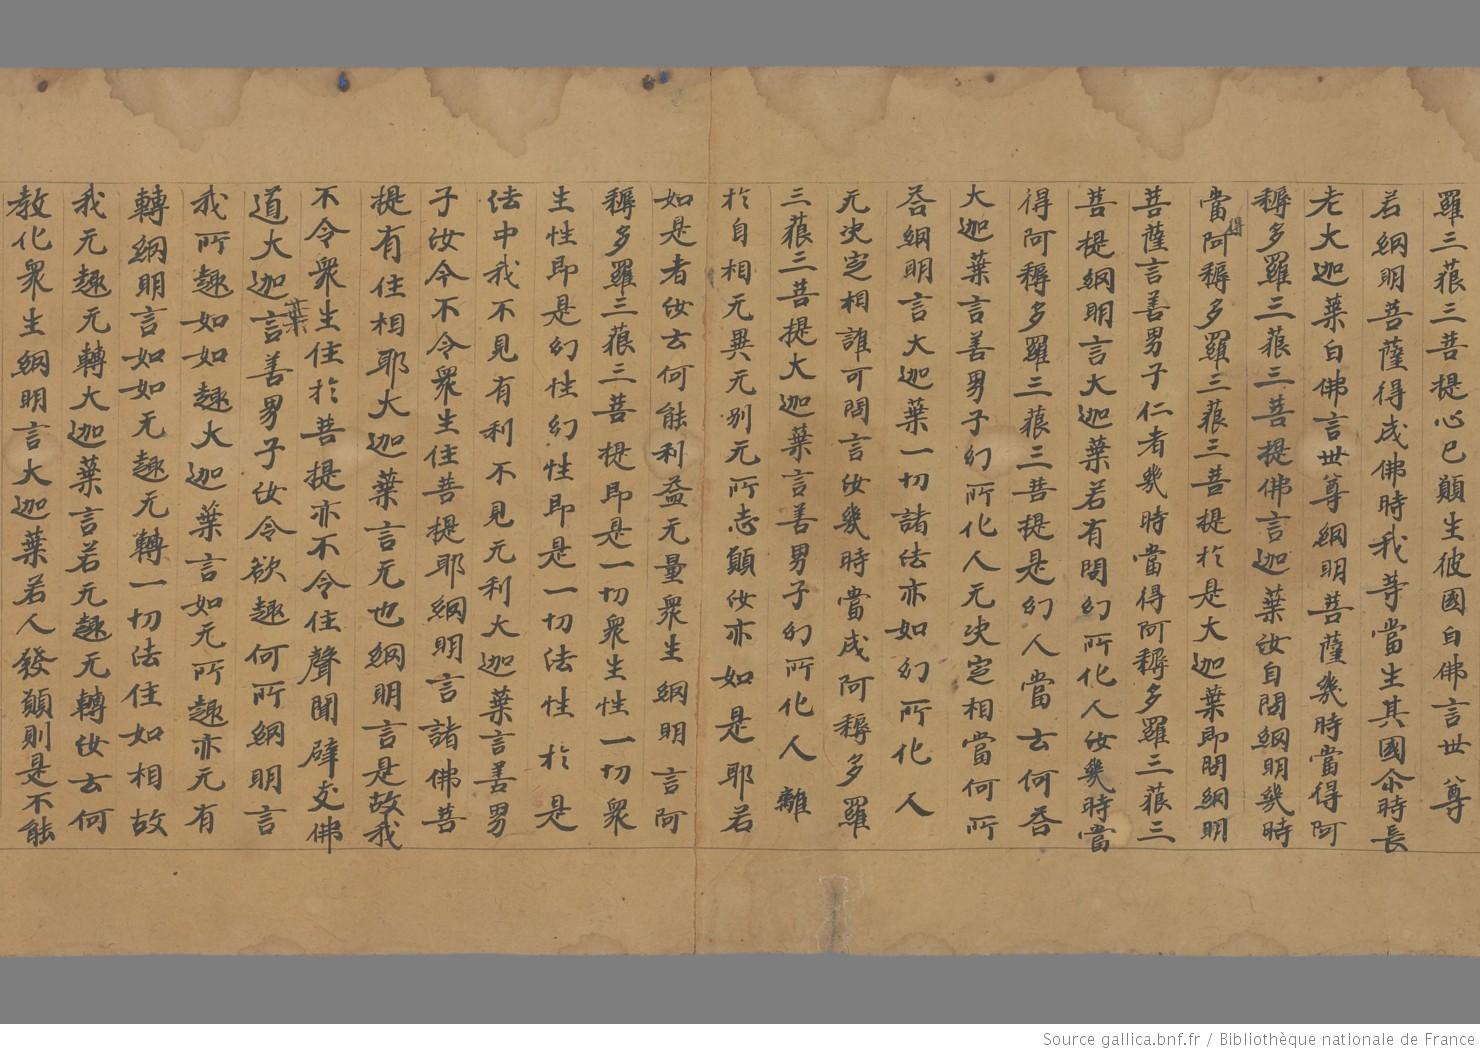 羅三藐三菩提心已願生彼國白佛言世尊
若網明菩薩得成佛時我等當生其國尒時長
老大迦葉白佛言世尊網明菩薩幾時當得阿
耨多羅三藐三菩提佛言迦葉汝自問網明幾時
當得阿耨多羅三藐三菩提於是大迦葉即問網明
菩薩言善男子仁者幾時當得阿耨多羅三藐三
菩提網明言大迦葉若有問幻所化人汝幾時當
得阿耨多羅三藐三菩提是幻人當云何荅
大迦葉言善男子幻所化人无決定相當何所
荅網明言大迦葉一切諸法亦如幻所化人
无決定相誰可問言汝幾時當成阿耨多羅
三藐三菩提大迦葉言善男子幻所化人離
於自相无異无別无所志願汝亦如是耶若
如是者汝云何能利益无量衆生網明言阿
耨多羅三藐三菩提即是一切衆生性一切衆
生性即是幻性幻性即是一切法性於是
法中我不見有利不見无利大迦葉言善男
子汝今不令衆生住菩提耶網明言諸佛菩
提有住相耶大迦葉言无也網明言是故我
不令衆生住於菩提亦不令住聲聞辟支佛
道大迦葉言善男子汝今欲趣何所網明言
我所趣如如趣大迦葉言如无所趣亦无有
轉網明言如如无趣无轉一切法住如相故
我无趣无轉大迦葉言若无趣无轉汝云何
教化衆生網明言大迦葉若人發願則是不能
Source gallica.bnf.fr / Bibliothèque nationale de France